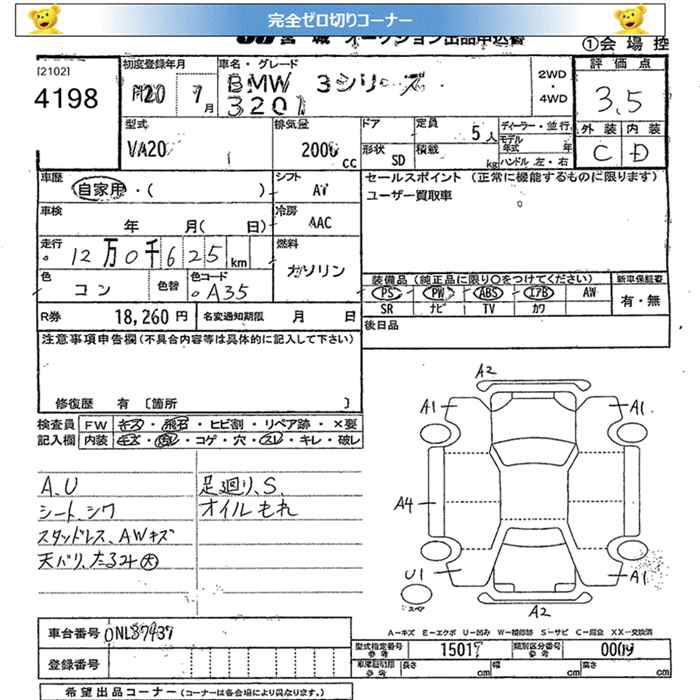 完全ゼロ切りコーナー
宮城 オークション出品申込書
①会場控
[2102]
4198
初度登録年月
20 7月
車名・グレード
BMW 3シリーズ
320i
2WD
・
4WD
評価点
3.5
外装 内装
C D
型式
VA20
排気量
2000 cc
ドア
形状 SD
定員 5人
積載 kg
ディーラー・並行
モデル年式 年
ハンドル 左・右
車歴
自家用・( )
シフト
AT
セールスポイント (正常に機能するものに限ります)
ユーザー買取車
車検
年 月( 日)
冷房
AAC
走行
12万0千625km
燃料
ガソリン
色
コン
色替
色コード
A35
装備品 (純正品に限り○をつけてください)
PS PW ABS エアB AW
SR ナビ TV カワ
新車保証書
有・無
R券 18,260円
名変通知期限 月 日
後日品
注意事項申告欄 (不具合内容等は具体的に記入して下さい)
修復歴 有 〔箇所 〕
検査員記入欄
FW キズ・飛石・ヒビ割・リペア跡・×要
内装 キズ・汚レ・コゲ・穴・スレ・キレ・破レ
A、U
シート、シワ
スタッドレス、AWキズ
天バリ、たるみ大
足廻り、S、
オイルもれ
A2
A1 A1
A4
U1 A1
スペア
A2
A-キズ E-エクボ U-凹み W-補修跡 S-サビ C-腐食 XX-交換済
車台番号 0NL87437
登録番号
型式指定番号 参考
類別区分番号 参考
長さ cm 幅 cm 高さ cm
希望出品コーナー (コーナーは各会場により異なります。)